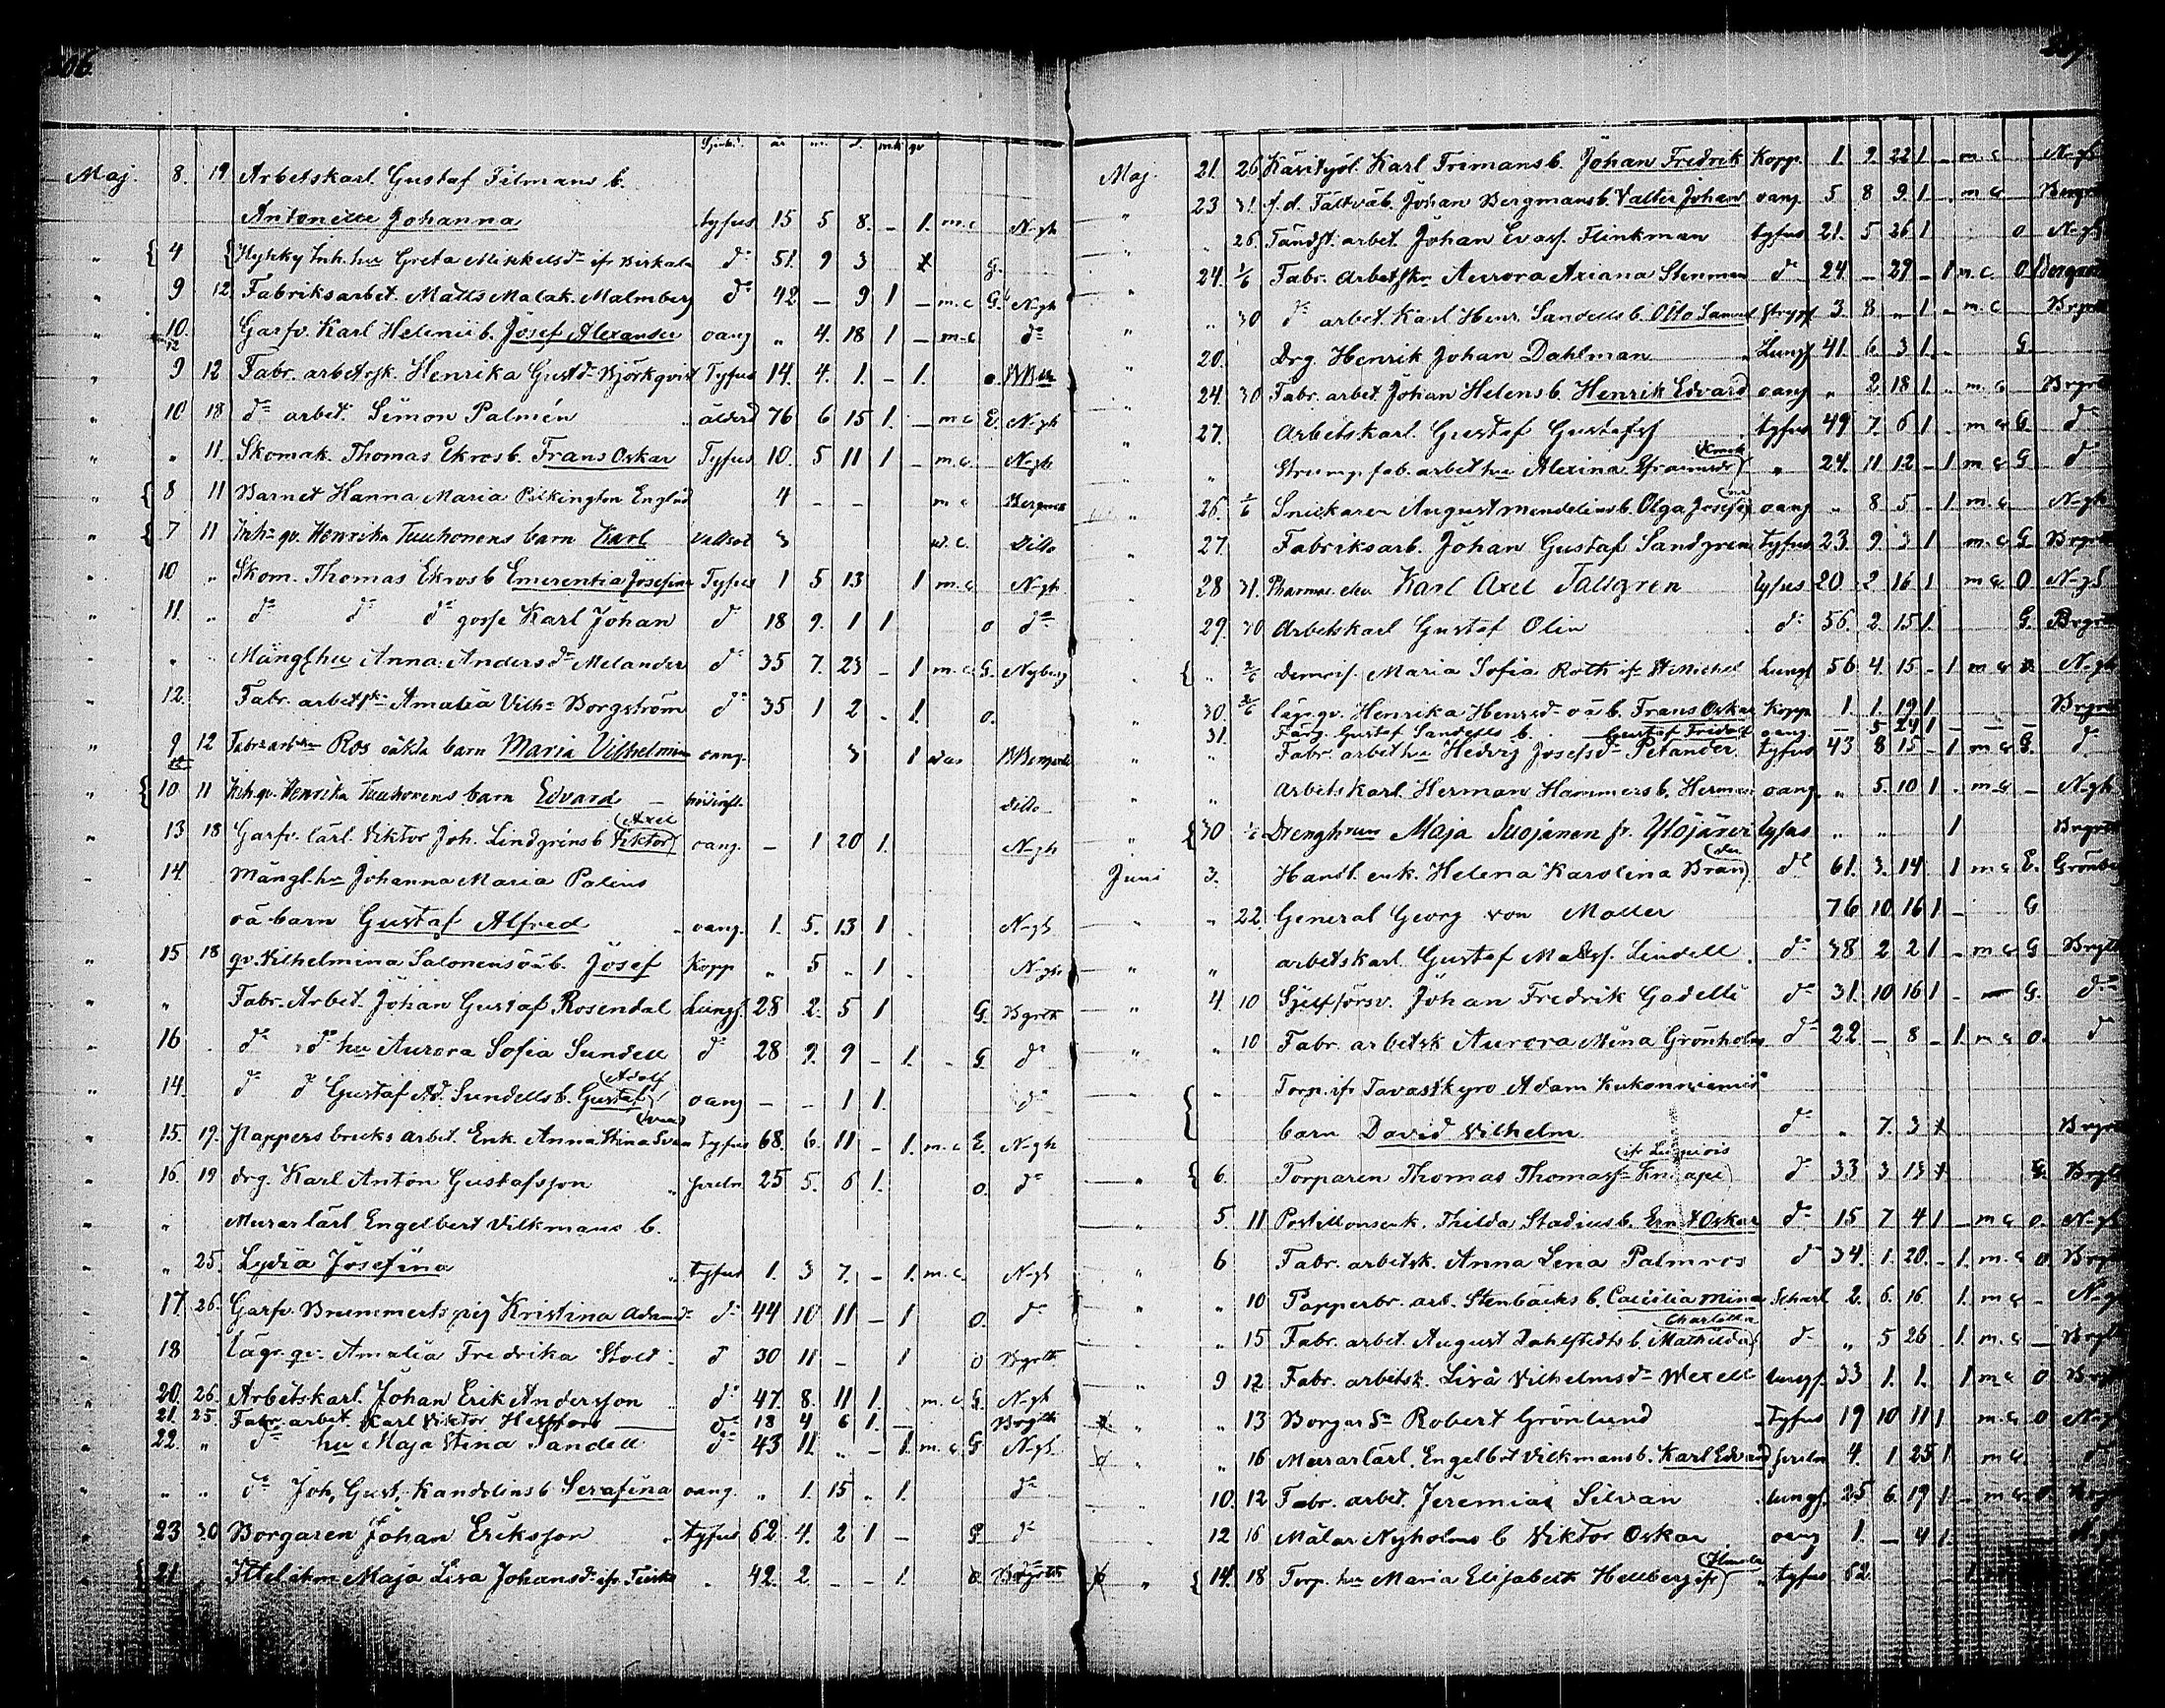 206.
Sjukd. år m. d. mk qv
Maj. 8. 19 Arbetskarl. Gustaf Tilmans b.
Antonette Johanna tyfus 15 5 8. - 1. m.c. N-gh
" 4 Greta Mikkelsdr ifr Birkala do 51. 9 3 G.
" 9 12 Fabriksarbet. Matts Malak. Malmberg do 42 - 9 1 - m.c N-gh
" 10. Garfv. Karl Helenii b. Josef Alexander oang " 4. 18 1 - m.c do
" 9 12 Fabr. arbetssk. Henrika Gustdr Björkqvist Tyfus 14. 4. 1. - 1. o.
" 10 18 do arbet. Simon Palmén ålderd 76 6 15 1. - m c E. N-gh
" " 11. Skomak. Thomas Ekros b. Frans Oskar Tyfus 10. 5 11 1 - m.c. N-gh
" 8 11 Barnet Hanna Maria Pilkington 4 - - m c
" 7 11 Inh. qv. Henrika Tuuhonens barn Karl 3 Ditto
" 10 " Skom. Thomas Ekros b Emerentia Josefina Tyfus 1 5 13 1 m.c. N-gh
" 11. " do do do gosse Karl Johan do 18 9. 1 1 o do
" " Anna Andersdr Melander do 35 7. 23 - 1 m.c. G. Nyberg
" 12. Fabr. arbetssk. Amalia Vilh. Borgström do 35 1 2 - 1. o.
" 9 12 Ros oäkta barn Maria Vilhelmina oang. 3 1
" 10 11 Inh. qv. Henrika Tuuhonens barn Edvard ditto
" 13 18 Garfv. lärl. Viktor Joh. Lindgréns b Axel Viktor oang. - 1 20 1. N-gh
" 14. Mängl. hu Johanna Maria Palins
oä barn Gustaf Alfred oang. 1. 5. 13 1 N-gh
" 15 18 qv. Vilhelmina Salonens oä b. Josef Kopp " 5 " 1. N-gh
" " Fabr. Arbet. Johan Gustaf Rosendal Lungs. 28 2. 5 1 G. Bgrth
" 16 do do hu Aurora Sofia Sundell do 28 9. 9 - 1. - G. do
" 14. do do Gustaf Ad. Sundells b. Gustaf Adolf oang - - 1 1. do
" 15. 19. Pappersbruks arbet. Enk. Anna Stina Tyfus 68. 6. 11 - 1. m.c. E. N-gh
" 16. 19 drg. Karl Anton Gustafsson 25 5. 6 1. o. do
" " Murar lärl Engelbert Vilkmans b.
" 25. Lydia Josefina " tyfus 1. 3 7. - 1. m.c. N-gh
" 17. 26. Garfv. Brummerts pig Kristina Adamsdr do 44 10 11 - 1 o. do
" 18 lägr. qv. Amalia Fredrika Stold do 30 11 - 1 o Brgrth
" 20. 26. Arbetskarl. Johan Erik Andersson do 47. 8. 11 1. m.c G. N-gh
" 21. 25. Fabr. arbet. Karl Viktor do 18 4 6 1. - Brgrth
" 22. " do hu Maja Stina Sandell do 43 11. " - 1. m.c. G N-gh
" " " do Joh. Gust. Kandelins b Serafina oang. " 1. 15 " 1. do
" 23 30 Borgaren Johan Eriksson " tyfus 62. 4. 2 1 - do
" 21. Maja Lisa Johansdr " 42. 2 - - 1. o. Brgrth
Maj. 21. 26. Karl Frimans b. Johan Fredrik Kopp. 1. 9. 22 1 - m.c N-gh
" 23 31 Johan Bergmans b. Valter Johan oang. 5 8 9 1 - m c
" " 26. Tändst. arbet. Johan Evass. Flinkman tyfus 21. 5 26 1 o N-gh
" 24. 1/6 Fabr. Arbetssk. Aurora Axiana Stenman do 24. - 29 - 1 m.c. O
" " 30 do arbet. Karl Henr. Sandells b. Otto Samuel 3 8 " 1 - m.c
" 20. Drg. Henrik Johan Dahlman " Lungs 41. 6. 3 1. G.
" 24 30 Fabr. arbet. Johan Helens b. Henrik Edvard oang " 2. 18 1. m. c.
" 27. Arbetskarl. Gustaf Gustafss tyfus 49 7. 6 1 m c G. do
" " Strumpfab. arbet hu Alexina " 24. 11 12 - 1 m c G do
" 26. 2/6 Snickaren August Mendelins b. Olga Josefina oang " 8 5 - 1 m.c. N-gh
" 27 Fabriksarb. Johan Gustaf Sandgren tyfus 23 9. 3 1 m. c G
" 28 31. Pharmac. elev Karl Axel Tallgren tyfus 20 2 16 1 m c O. N-gh
" 29. 30 Arbetskarl Gustaf Olin do 56. 2. 15 1. G.
" " 2/6 Demois. Maria Sofia Roth ifr St Michel Lungs 56. 4. 15 - 1 m c o. N-gh
" 30. 2/6 lägr. qv. Henrika Henrsdr oä b. Frans Oskar Kopp 1. 1. 19 1.
31. Färg. Gustaf Sandells b. Gustaf Fridolf oang. - 5 24 1 - - -
" " Fabr. arbet hu Hedvig Josefsdr Petander. tyfus 43 8 15 - 1 m c G. do
" " Arbetskarl Herman Hammers b. Herman oang " 5. 10 1 m-c - N-gh
" 30 Maja Suojanen fr. Ylöjärvi tyfus " " 1
Juni 3. Handl. enk. Helena Karolina Brander do 61. 3. 14. 1 m c E. Grönberg
" " 22. General Georg von Moller 76 10 16 1 - G
" " arbetskarl Gustaf Matss. Lindell do 38 2 2 1 - m c G
" 4. 10 Sjelfförsv. Johan Fredrik Gadelli do 31. 10 16 1 - G. do
" " 10 Fabr. arbetsk Aurora Mina Grönholm do 22. - 8 - 1. m c o. do
" Torp. ifr Tavastkyro Adam Kukonniemis
barn David Vilhelm do " 7. 3
" 6. Torparen Thomas Thomass do 33 3 13 G.
" 5. 11 Postillonsenk. Thilda Stadius b. Ernst Oskar do 15 7 4 1 - m c o. N-gh
" 6 Fabr. arbetsk. Anna Lena Palmros do 34. 1. 20. - 1. m. c o
" " 10 Papperbr. arb. Stenbäcks b. Caecilia Mina Scharl 2. 6. 16. 1. m c - N-gh
" " 15 Fabr. arbet. August Dahlstedts b. Charlotta Mathilda do " 5 26. 1. m. c -
" 9 12 Fabr. arbetsk. Lisa Vilhelmsdr Wexell lungs. 33 1. 1. 1 m c o
" " 13 Borgar Sn Robert Grönlund tyfus 19 10 11 1. m. c o N-gh
" " 16 Murarlärl. Engelbert Vilkmans b. Karl Edvard 4. 1 25 1. m c. do
10. 12 Fabr. arbet. Jeremias Silvan lungs. 25 6. 19 1 - m c o.
12 16 Målar Nyholms b Viktor Oskar oang 1. - 4 1.
" 14. 18 Torp. hu Maria Elisabeth Hellberg tyfus 62.